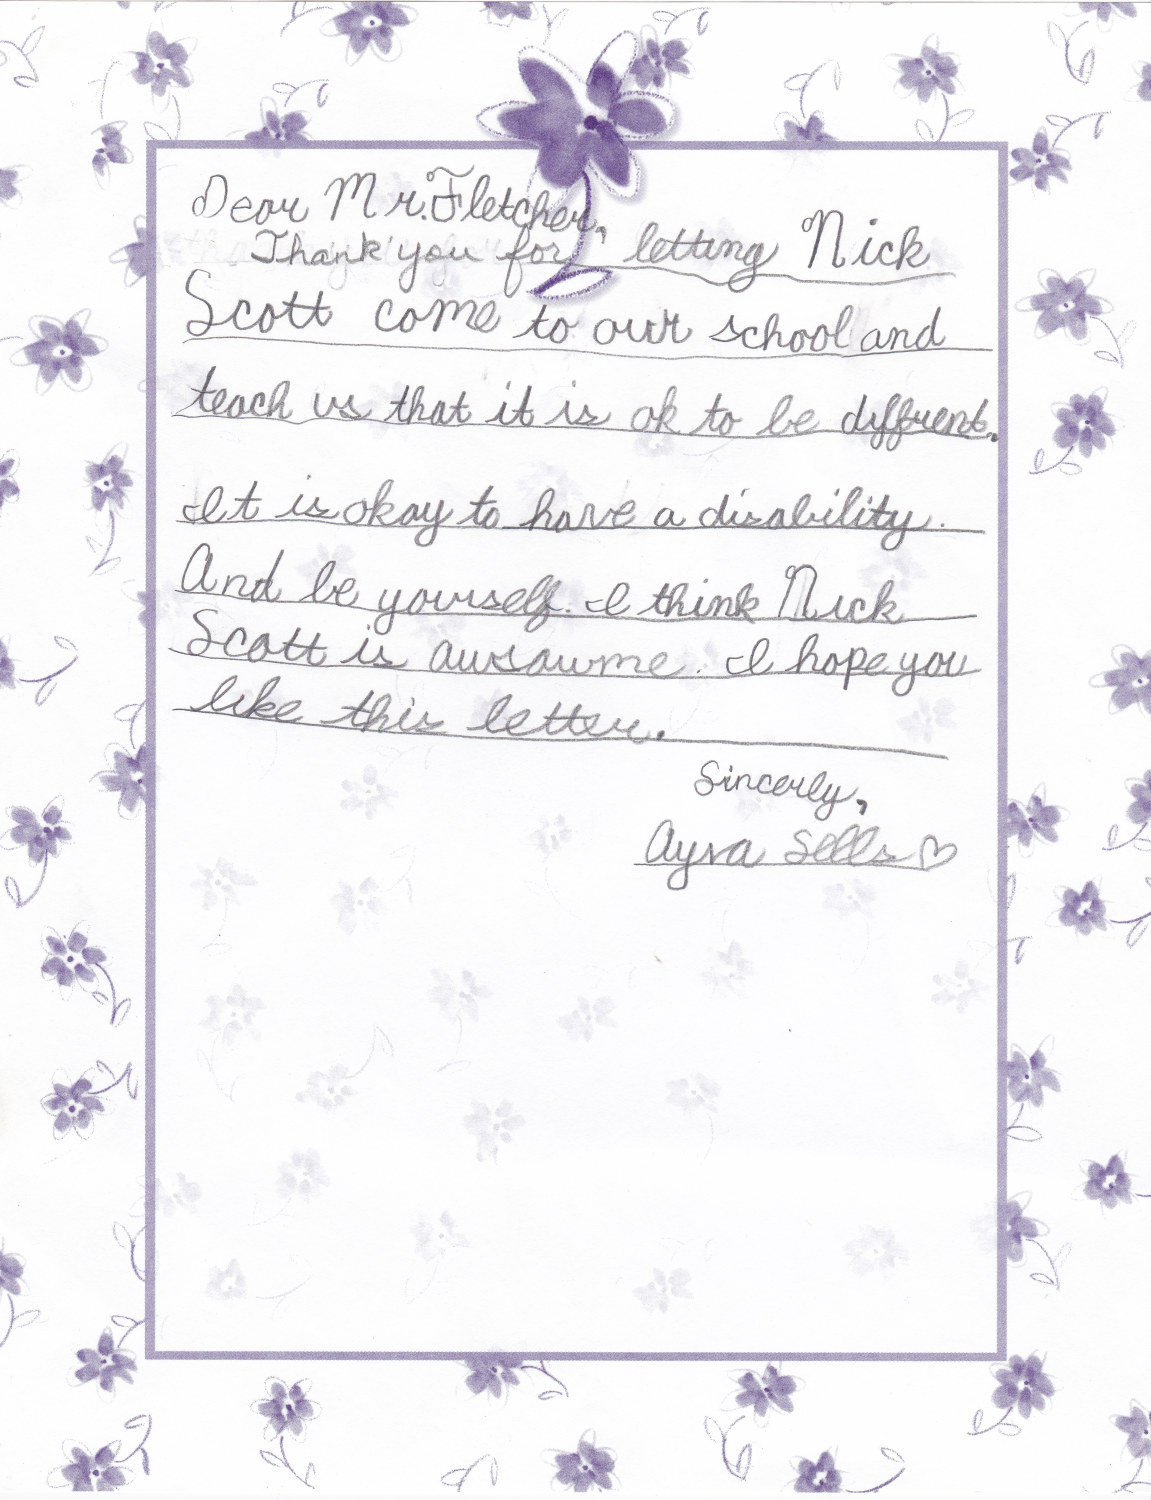 Dear Mr. Fletcher,
Thank you for letting Nick
Scott come to our school and
teach us that it is ok to be diffrent.
It is okay to have a disability.
And be yourself. I think Nick
Scott is awsowme. I hope you
like this letter.
Sincerly,
Ayva Sells♡